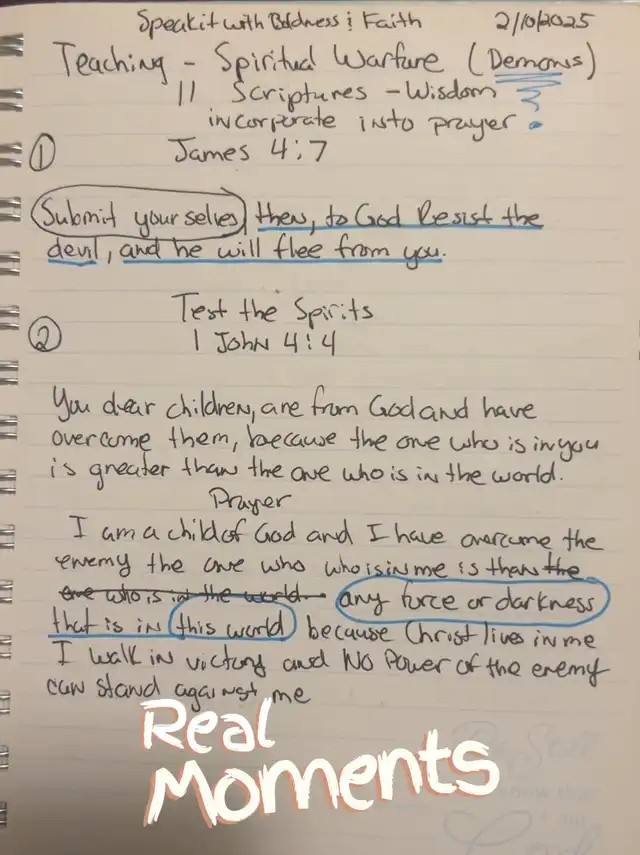 Speak it with Boldness & Faith 2/10/2025
Teaching - Spiritual Warfare (Demons)
11 Scriptures - Wisdom
incorporate into prayer.
① James 4:7
Submit yourselves then, to God Resist the
devil, and he will flee from you.
Test the Spirits
② 1 John 4:4
You dear children, are from God and have
overcome them, because the one who is in you
is greater than the one who is in the world.
Prayer
I am a child of God and I have overcome the
enemy the one who who is in me is than the
one who is in the world any force or darkness
that is in this world because Christ lives in me
I walk in victory and No Power of the enemy
can stand against me
Real
Moments